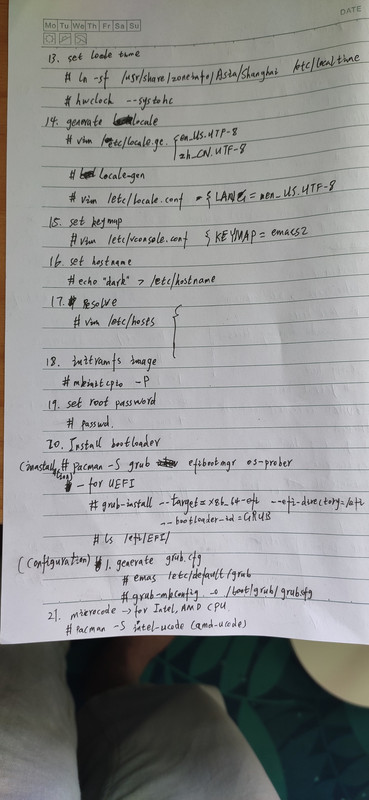 DATE
Mo Tu We Th Fr Sa Su
13. set locale time
# ln -sf /usr/share/zoneinfo/Asia/Shanghai /etc/localtime
# hwclock --systohc
14. generate locale
# vim /etc/locale.ge. { en_US.UTF-8
zh_CN.UTF-8
# locale-gen
# vim /etc/locale.conf - { LANG = en_US.UTF-8
15. set keymap
# vim /etc/vconsole.conf { KEYMAP = emacs2
16. set hostname
# echo "dark" > /etc/hostname
17. resolve
# vim /etc/hosts {
18. initramfs image
# mkinitcpio -P
19. set root password
# passwd.
20. Install bootloader
(installation) # pacman -S grub efibootmgr os-prober
- for UEFI
# grub-install --target=x86_64-efi --efi-directory=/efi
--bootloader-id=GRUB
# ls /efi/EFI/
(Configuration) 1. generate grub.cfg
# emas /etc/default/grub
# grub-mkconfig -o /boot/grub/grub.cfg
21. microcode → for Intel, AMD CPU
# pacman -S intel-ucode (amd-ucode)